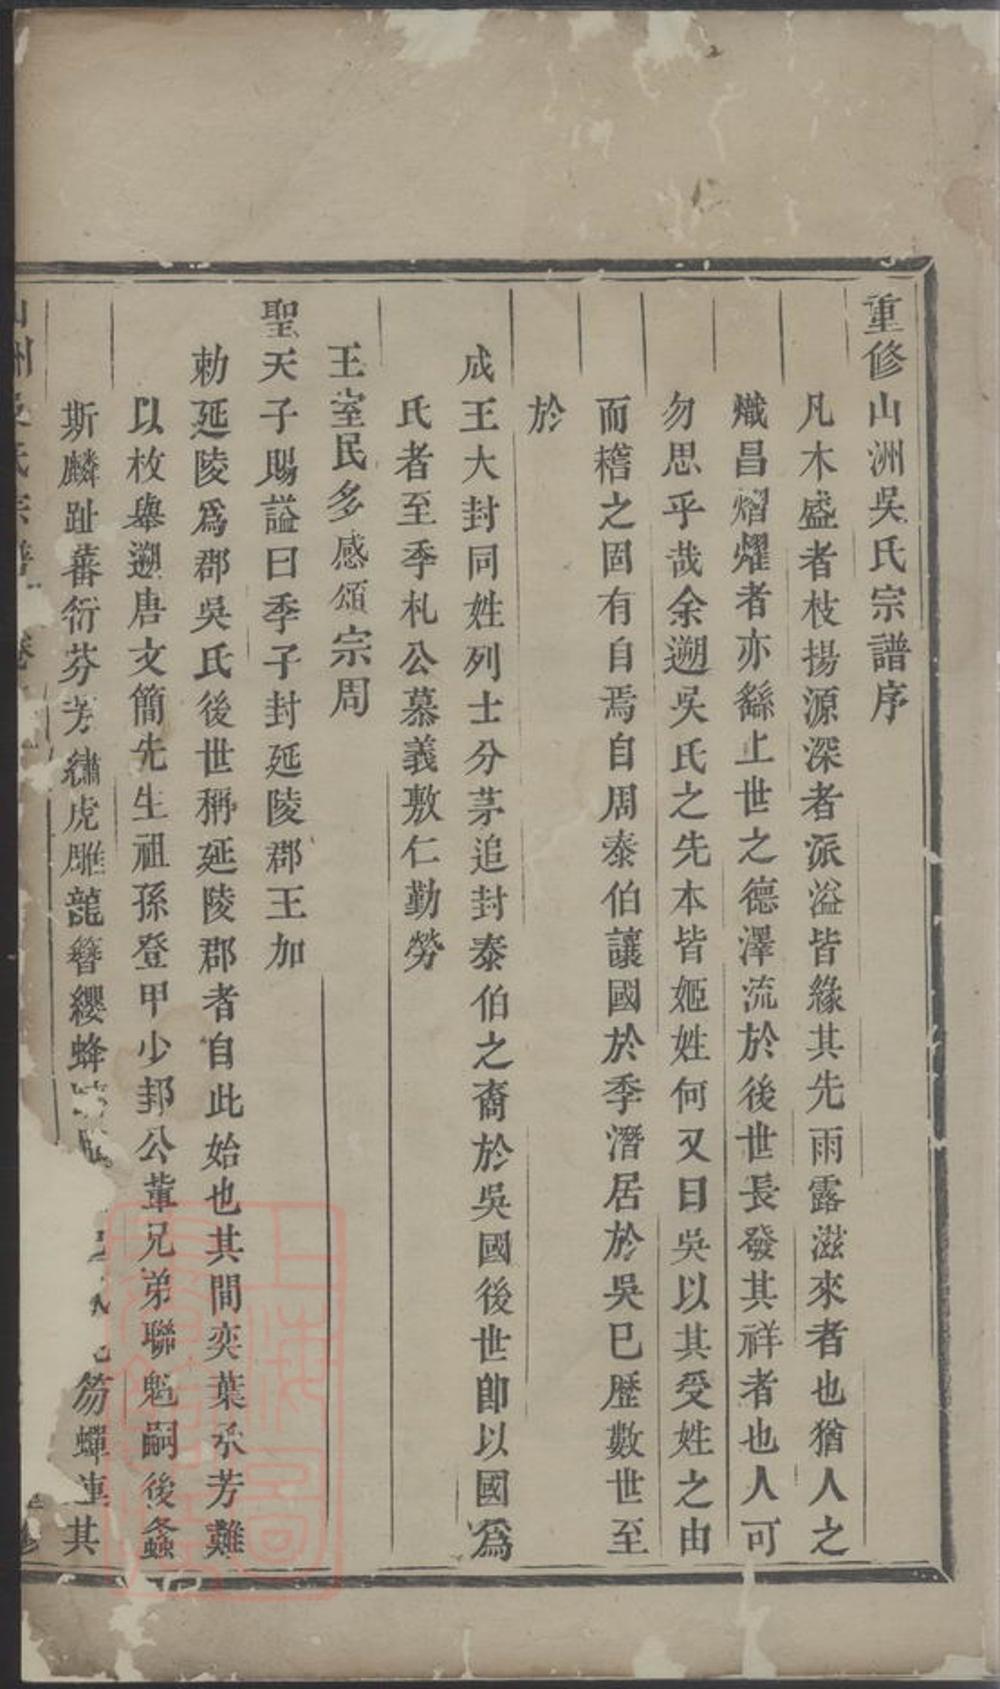 重修山洲吳氏宗譜序
凡木盛者枝揚源深者派溢皆緣其先雨露滋來者也猶人之
熾昌熠燿者亦繇上世之德澤流於後世長發其祥者也人可
勿思乎哉余遡吳氏之先本皆姬姓何又曰吳以其受姓之由
而稽之固有自焉自周泰伯讓國於季潛居於吳巳歷數世至
於
成王大封同姓列士分茅追封泰伯之裔於吳國後世卽以國爲
氏者至季札公慕義敷仁勤勞
王室民多感頌宗周
聖天子賜謚曰季子封延陵郡王加
勅延陵爲郡吳氏後世稱延陵郡者自此始也其間奕葉承芳難
以枚舉遡唐文簡先生祖孫登甲少邦公軰兄弟聯魁嗣後螽
斯麟趾蕃衍芬芳繡虎雕龍簪纓蜂笏蟬連其
山洲吳氏宗譜卷